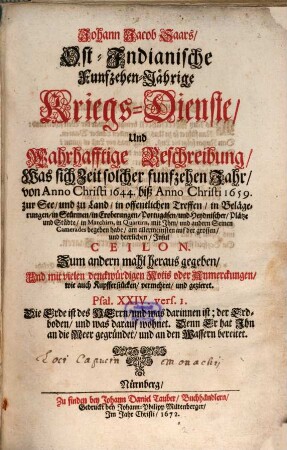 Johann Jacob Saars/
Ost-Indianische
Funfzehen-Jährige
Kriegs-Dienste/
Und
Wahrhafftige Beschreibung/
Was sich Zeit solcher funfzehen Jahr/
von Anno Christi 1644. biß Anno Christi 1659.
zur See/ und zu Land/ in offentlichen Treffen/ in Beläge-
rungen/ in Stürmen/ in Eroberungen/ Portugäsen/ und Heydnischer/ Plätze
und Städte/ in Marchirn, in Quartirn, mit Ihm/ und andern Seinen
Camerades begeben habe/ am allermeinsten auf der grossen/
und herrlichen/ Insul
CEILON.
Zum andern mahl heraus gegeben/
Und mit vielen denckwürdigen Notis oder Anmerckungen/
wie auch Kupfferstücken/ vermehret/ und gezieret.
Psal. XXIV. vers. 1.
Die Erde ist des HErrn/ und was darinnen ist; der Erd-
boden/ und was darauf wohnet. Denn Er hat Ihn
an die Meer gegründet/ und an den Wassern bereitet.
Loci Capucin
Nürnberg/
Zu finden bey Johann Daniel Tauber/ Buchhändlern/
Gedruckt bey Johann-Philipp Miltenberger/
Im Jahr Christi/ 1672.